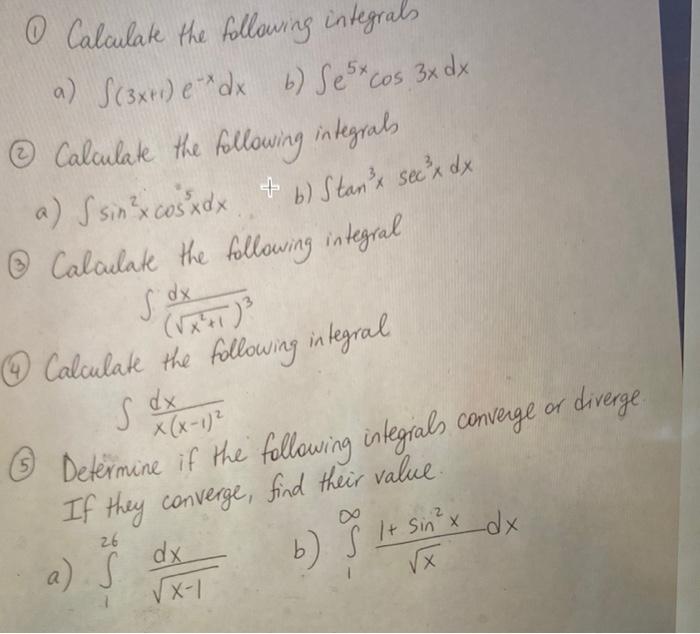 ① Calculate the following integrals
a) ∫(3x+1) e⁻ˣ dx b) ∫e⁵ˣ cos 3x dx
② Calculate the following integrals
a) ∫ sin²x cos⁵x dx b) ∫tan³x sec³x dx
③ Calculate the following integral
∫ dx / (√(x²+1))³
④ Calculate the following integral
∫ dx / x(x-1)²
⑤ Determine if the following integrals converge or diverge.
If they converge, find their value.
a) ∫₁²⁶ dx / √(x-1) b) ∫₁^∞ (1+ sin²x) / √x dx